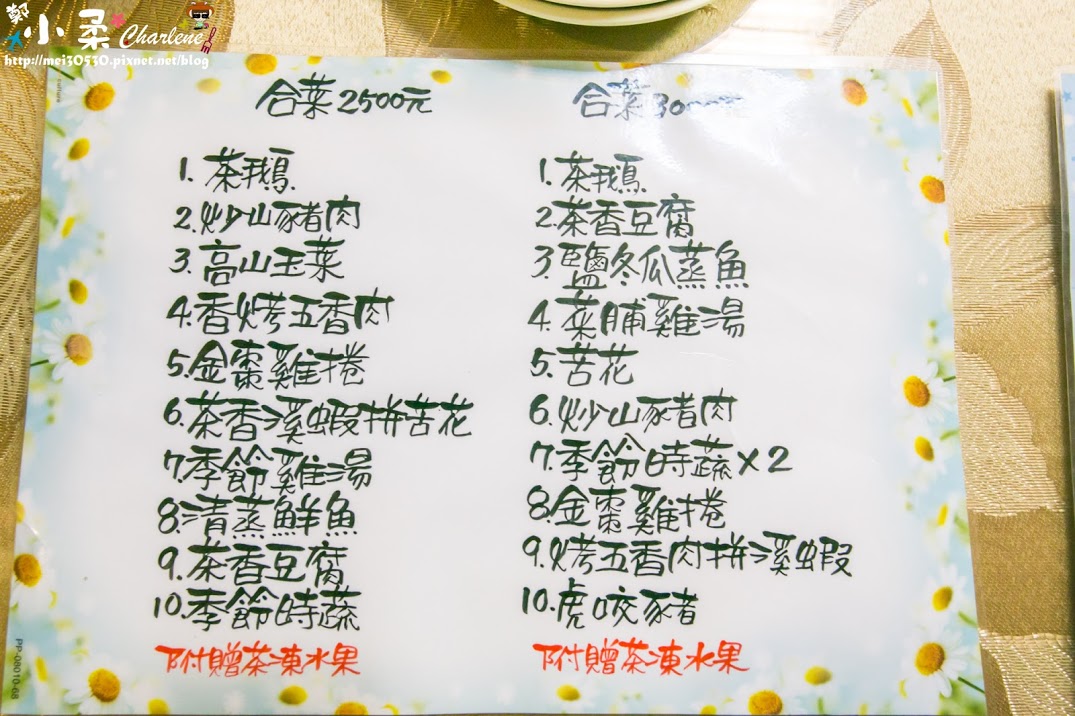 鄭小柔 Charlene
http://mei30530.pixnet.net/blog
合菜2500元
1. 茶鵝
2. 炒山豬肉
3. 高山玉菜
4. 香烤五香肉
5. 金棗雞捲
6. 茶香溪蝦拼苦花
7. 季節雞湯
8. 清蒸鮮魚
9. 茶香豆腐
10. 季節時蔬
附贈茶凍水果
合菜30
1. 茶鵝
2. 茶香豆腐
3. 鹽冬瓜蒸魚
4. 菜脯雞湯
5. 苦花
6. 炒山豬肉
7. 季節時蔬x2
8. 金棗雞捲
9. 烤五香肉拼溪蝦
10. 虎咬豬
附贈茶凍水果
PP-08010-68